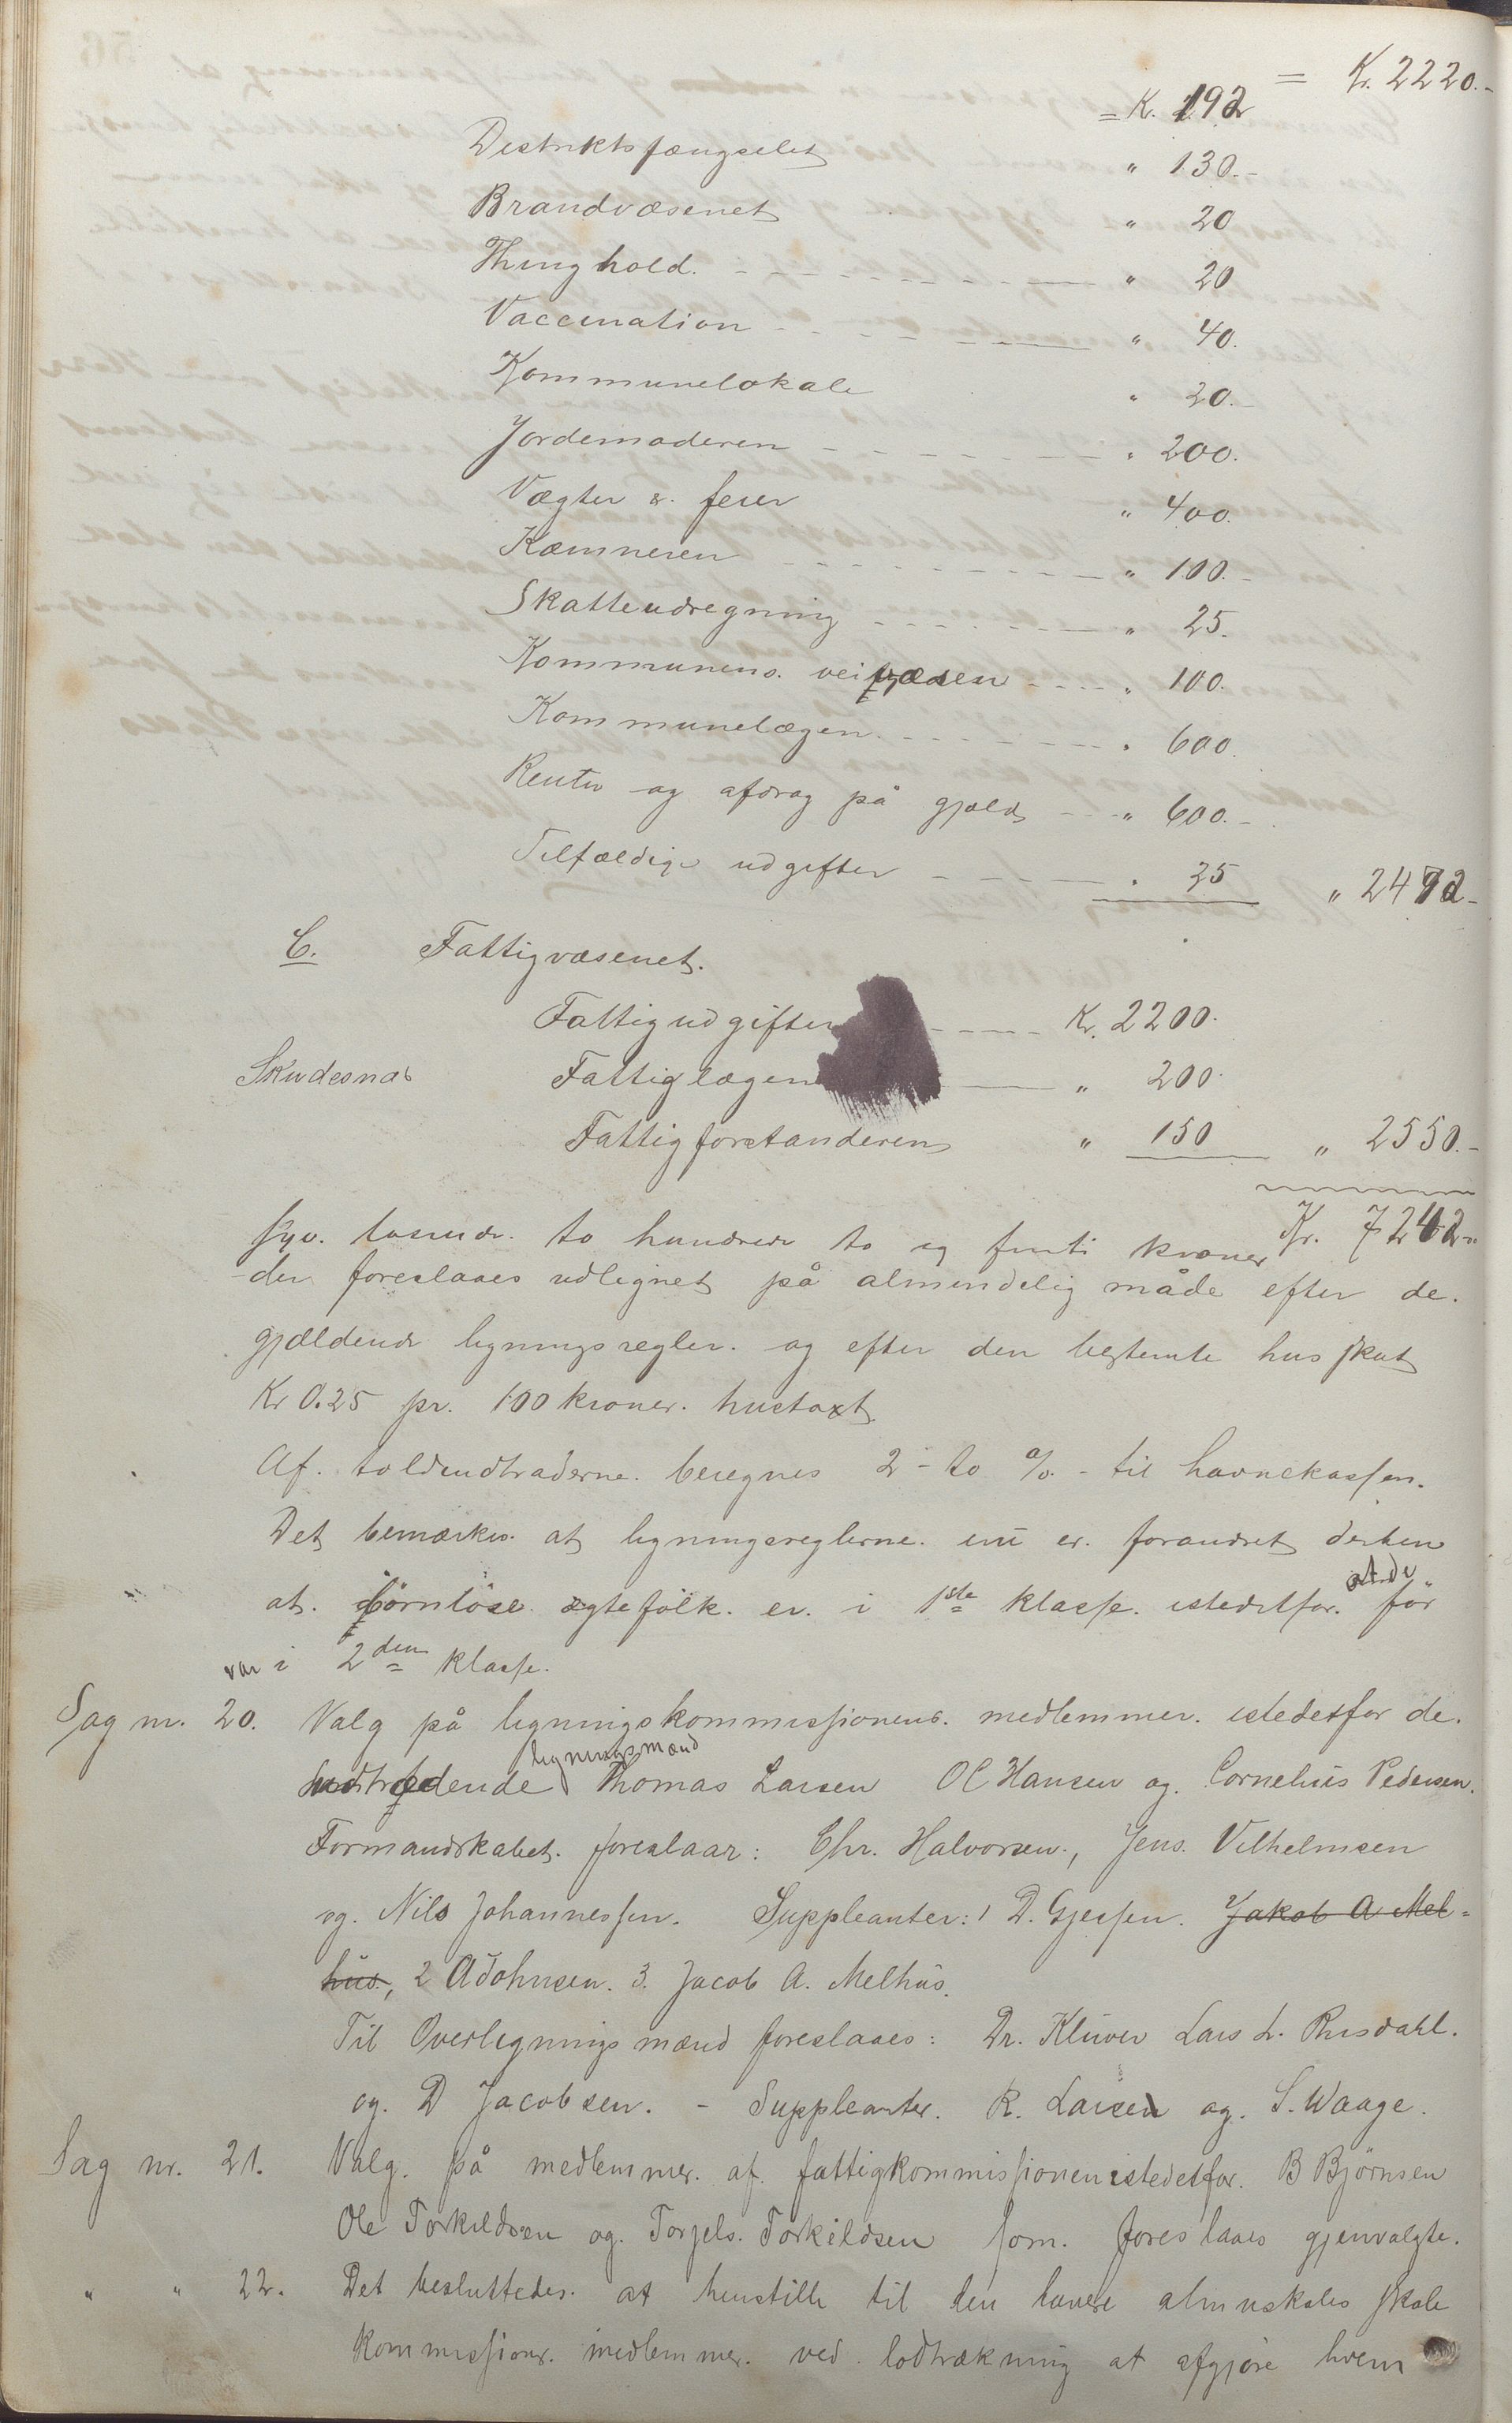 = Kr. 2220.-
Destriktsfængselet = K. 192
Brandvæsenet " 130.-
Thinghold. " 20
Vaccination " 20
Kommunelokale " 40.
Jordemoderen " 20.-
Vægter & feier " 200.
Kæmneren " 400.
Skatteudregning " 100.-
Kommunens. veivæsen " 25.
Kommunelægen " 100.
Renter og afdrag på gjæld " 600.
Tilfældige udgifter " 600.-
" 25 " 2472-
C. Fattigvæsenet.
Fattigudgifter Kr. 2200.
Skudesnæs Fattiglægen " 200.
Fattigforstanderen " 150 " 2550.-
Kr. 7242-
syv. tusinde. to hundrede to og firti kroner
der foreslaaes udlignet på almindelig måde efter de.
gjældende ligningsregler. og efter den bestemte husskat
Kr 0.25 pr. 100 kroner. hustaxt.
Af. toldindtraderne. beregnes 2 - to % - til havnekassen.
Det bemærkes. at ligningsreglerne. nu er. forandret derhen
at. börnlöse ægtefolk. er. i 1ste klasse. istedetfor. at de för
var i 2den klasse.
Sag nr. 20. Valg på ligningskommissionens. medlemmer. istedetfor de.
udtrædende ligningsmænd Thomas Larsen O C Hansen og. Cornelius Pedersen.
Formandskabet. foreslaar: Chr. Halvorsen., Jens. Vilhelmsen
og. Nils Johannessen. Suppleanter: 1 D. Gjessen. Jakob A Mel=
hus., 2 A Johnsen. 3. Jacob A. Melhus.
Til Overligningsmænd foreslaaes: Dr. Klüver Lars L. Risdahl.
og. D Jacobsen. - Suppleanter. R. Larsen og. S. Waage.
Sag nr. 21. Valg. på medlemmer. af. fattigkommissionen istedetfor. B Björnsen
Ole Torkildsen og. Torjels. Torkildsen som. foreslaaes gjenvalgte.
" " 22. Det besluttedes. at henstille til den lavere almuskoles skole
kommissions. medlemmer. ved. lodtrækning at afgjöre hvem